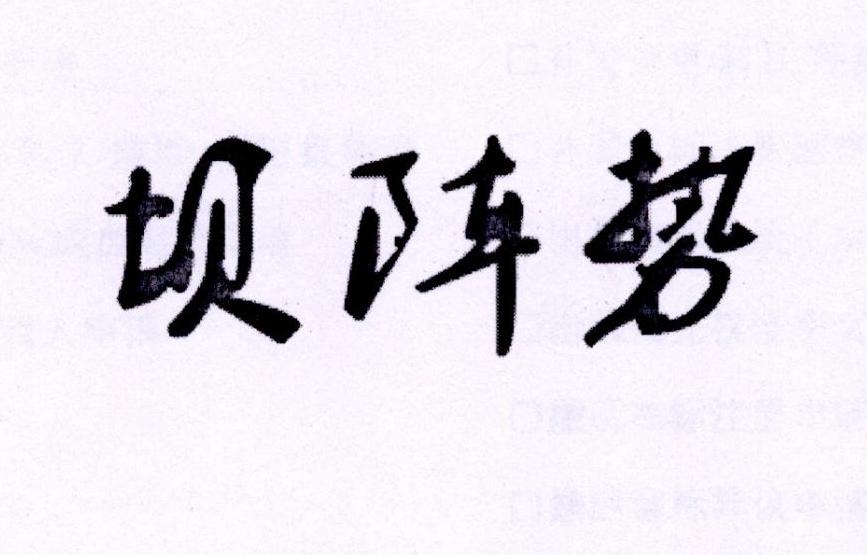 坝阵势